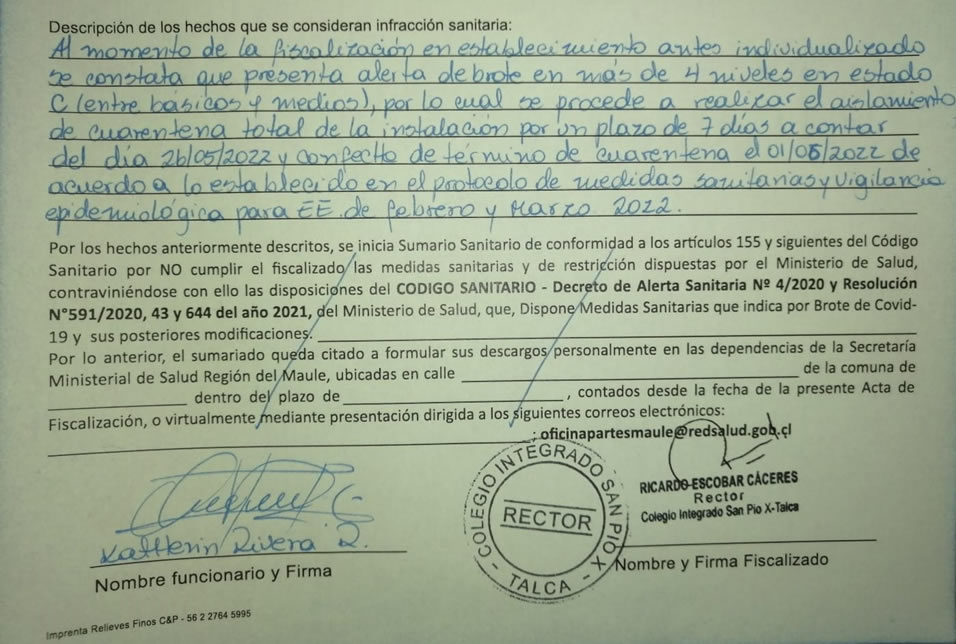 Descripción de los hechos que se consideran infracción sanitaria:
Al momento de la fiscalización en establecimiento antes individualizado
se constata que presenta alerta de brote en más de 4 niveles en estado
C (entre básicos y medios), por lo cual se procede a realizar el aislamiento
de cuarentena total de la instalación por un plazo de 7 días a contar
del día 26/05/2022 y con fecha de término de cuarentena el 01/06/2022 de
acuerdo a lo establecido en el protocolo de medidas sanitarias y vigilancia
epidemiológica para EE. de febrero y Marzo 2022.
Por los hechos anteriormente descritos, se inicia Sumario Sanitario de conformidad a los artículos 155 y siguientes del Código
Sanitario por NO cumplir el fiscalizado las medidas sanitarias y de restricción dispuestas por el Ministerio de Salud,
contraviniéndose con ello las disposiciones del CODIGO SANITARIO - Decreto de Alerta Sanitaria Nº 4/2020 y Resolución
N°591/2020, 43 y 644 del año 2021, del Ministerio de Salud, que, Dispone Medidas Sanitarias que indica por Brote de Covid-
19 y sus posteriores modificaciones.
Por lo anterior, el sumariado queda citado a formular sus descargos personalmente en las dependencias de la Secretaría
Ministerial de Salud Región del Maule, ubicadas en calle de la comuna de
dentro del plazo de , contados desde la fecha de la presente Acta de
Fiscalización, o virtualmente mediante presentación dirigida a los siguientes correos electrónicos:
; oficinapartesmaule@redsalud.gob.cl
COLEGIO INTEGRADO SAN PIO X
RECTOR
- TALCA -
RICARDO ESCOBAR CÁCERES
Rector
Colegio Integrado San Pio X-Talca
Katherin Rivera R.
Nombre funcionario y Firma
Nombre y Firma Fiscalizado
Imprenta Relieves Finos C&P - 56 2 2764 5995